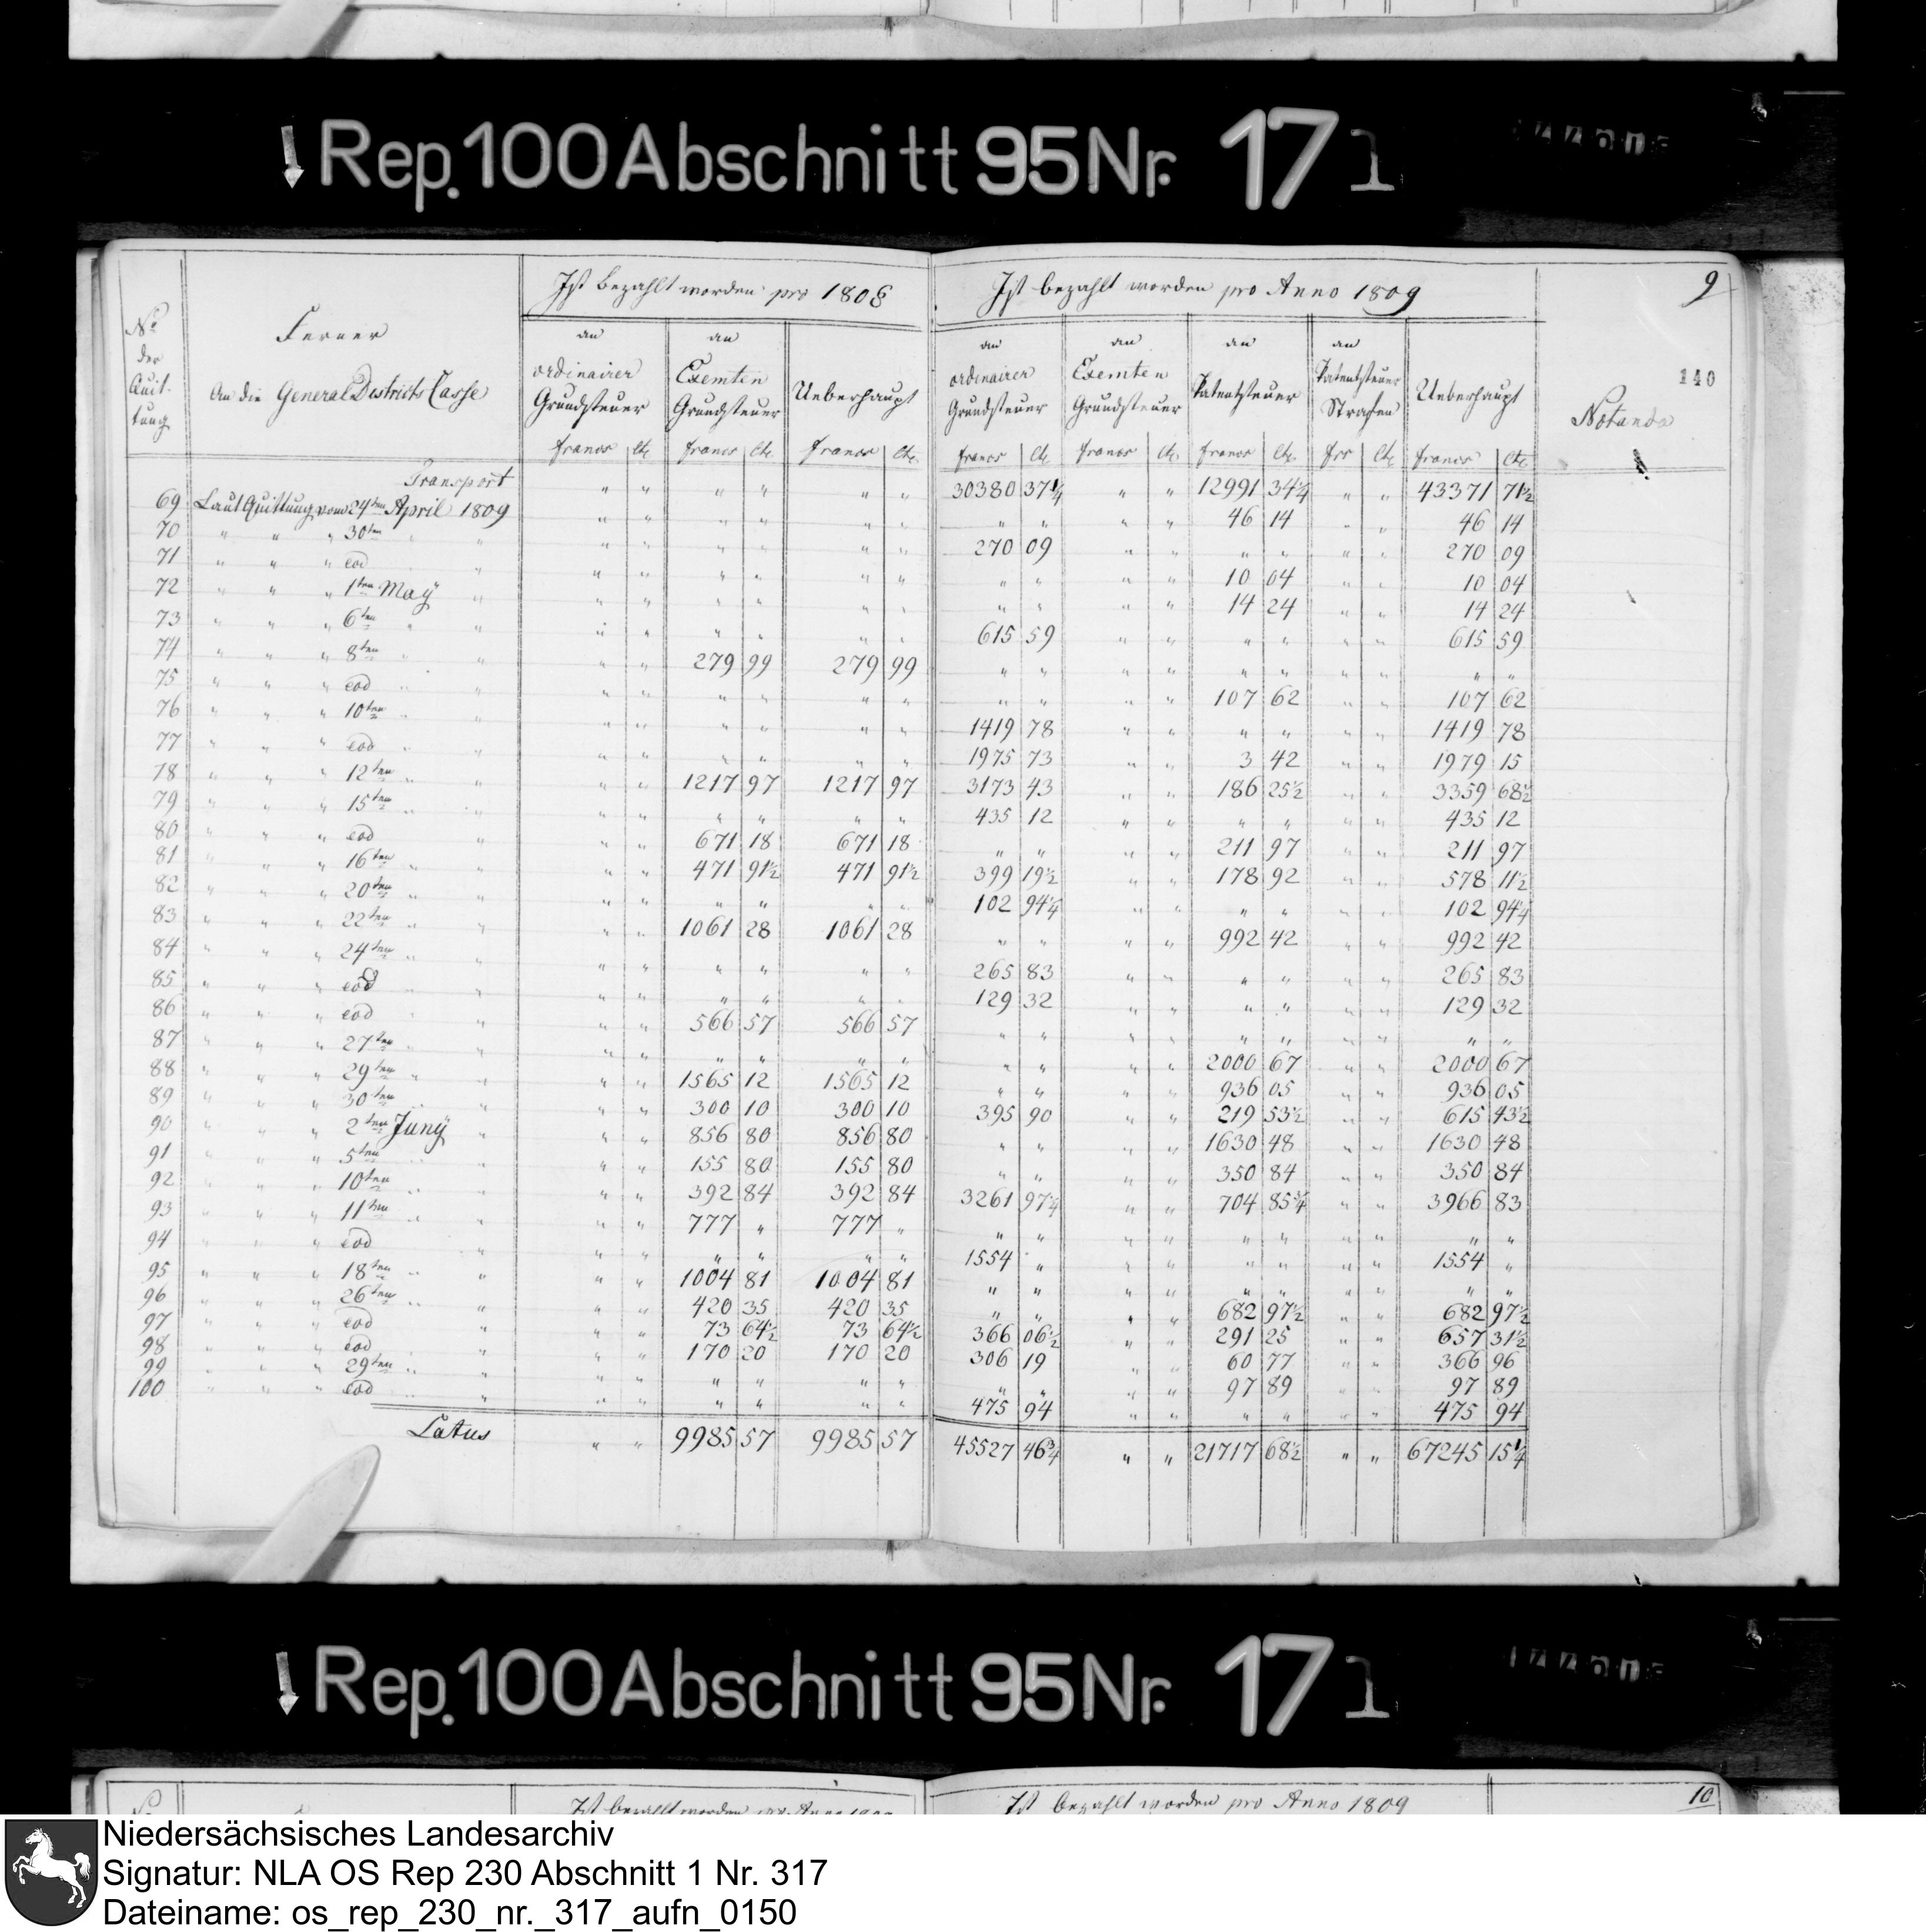 Rep. 100 Abschnitt 95 Nr. 17 1
Ist bezahlt worden pro 1808 Ist bezahlt worden pro Anno 1809 9
No der Quit-tung
Ferner
An die General Districts Casse
an ordinairer Grundsteuer
an Exemten Grundsteuer
Ueberhaupt
an ordinairer Grundsteuer
an Exemten Grundsteuer
an Patentsteuer
an Patentsteuer Strafen
Ueberhaupt
Notanda
140
francs Ctc francs Ctc francs Ctc francs Ctc francs Ctc francs Ctc frcs Ctc francs Ctc
Transport " " " " " " 30380 37¼ " " 12991 34¼ " " 43371 71½
69 Laut Quittung vom 24ten April 1809 " " " " " " " " " " 46 14 " " 46 14
70 " " " 30ten " " " " " " " " 270 09 " " " " " " 270 09
71 " " " eod " " " " " " " " " " " 10 04 " " 10 04
72 " " " 1ten May " " " " " " " " " " " 14 24 " " 14 24
73 " " " 6ten " " " " " " " " 615 59 " " " " " " 615 59
74 " " " 8ten " " " " 279 99 279 99 " " " " " " " " " "
75 " " " eod " " " " " " " " " " " " 107 62 " " 107 62
76 " " " 10ten " " " " " " " " 1419 78 " " " " " " 1419 78
77 " " " eod " " " " " " " " 1975 73 " " 3 42 " " 1979 15
78 " " " 12ten " " " " 1217 97 1217 97 3173 43 " " 186 25½ " " 3359 68½
79 " " " 15ten " " " " " " " " 435 12 " " " " " " 435 12
80 " " " eod " " " 671 18 671 18 " " " " 211 97 " " 211 97
81 " " " 16ten " " " " 471 91½ 471 91½ 399 19½ " " 178 92 " " 578 11½
82 " " " 20ten " " " " " " " " 102 94¼ " " " " " " 102 94¼
83 " " " 22ten " " " " 1061 28 1061 28 " " " " 992 42 " " 992 42
84 " " " 24ten " " " " " " " " 265 83 " " " " " " 265 83
85 " " " eod " " " " " " " " 129 32 " " " " " " 129 32
86 " " " eod " " " 566 57 566 57 " " " " " " " " " "
87 " " " 27ten " " " " " " " " " " " " 2000 67 " " 2000 67
88 " " " 29ten " " " " 1565 12 1565 12 " " " " 936 05 " " 936 05
89 " " " 30ten " " " " 300 10 300 10 395 90 " " 219 53½ " " 615 43½
90 " " " 2ten Juny " " " 856 80 856 80 " " " " 1630 48 " " 1630 48
91 " " " 5ten " " " " 155 80 155 80 " " " " 350 84 " " 350 84
92 " " " 10ten " " " " 392 84 392 84 3261 97¼ " " 704 85¾ " " 3966 83
93 " " " 11ten " " " " 777 " 777 " " " " " " " " " " "
94 " " " eod " " " " " " " 1554 " " " " " " " 1554 "
95 " " " 18ten " " " " 1004 81 1004 81 " " " " " " " " " "
96 " " " 26ten " " " " 420 35 420 35 " " " " 682 97½ " " 682 97½
97 " " " eod " " " 73 64½ 73 64½ 366 06½ " " 291 25 " " 657 31½
98 " " " eod " " " 170 20 170 20 306 19 " " 60 77 " " 366 96
99 " " " 29ten " " " " " " " " " " " " 97 89 " " 97 89
100 " " " eod " " " " " " " " 475 94 " " " " " " 475 94
Latus " " 9985 57 9985 57 45527 46¾ " " 21717 68½ " " 67245 15¼
Rep. 100 Abschnitt 95 Nr. 17 1
Ist bezahlt worden pro Anno Ist bezahlt worden pro Anno 1809 10
Niedersächsisches Landesarchiv
Signatur: NLA OS Rep 230 Abschnitt 1 Nr. 317
Dateiname: os_rep_230_nr._317_aufn_0150